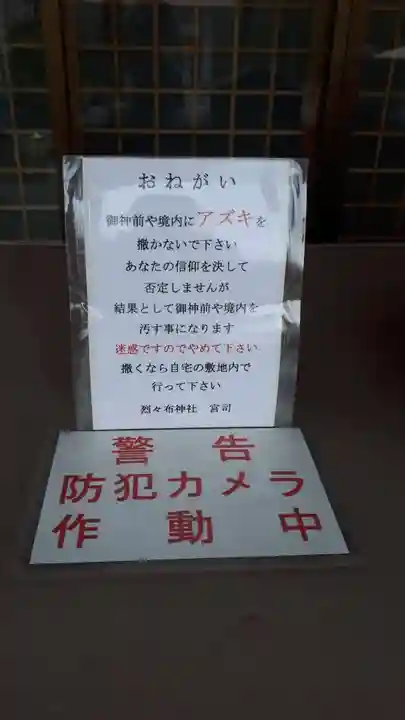 おねがい
御神前や境内にアズキを
撒かないで下さい
あなたの信仰を決して
否定しませんが
結果として御神前や境内を
汚す事になります
迷惑ですのでやめて下さい
撒くなら自宅の敷地内で
行って下さい
烈々布神社　宮司
警告
防犯カメラ
作動中